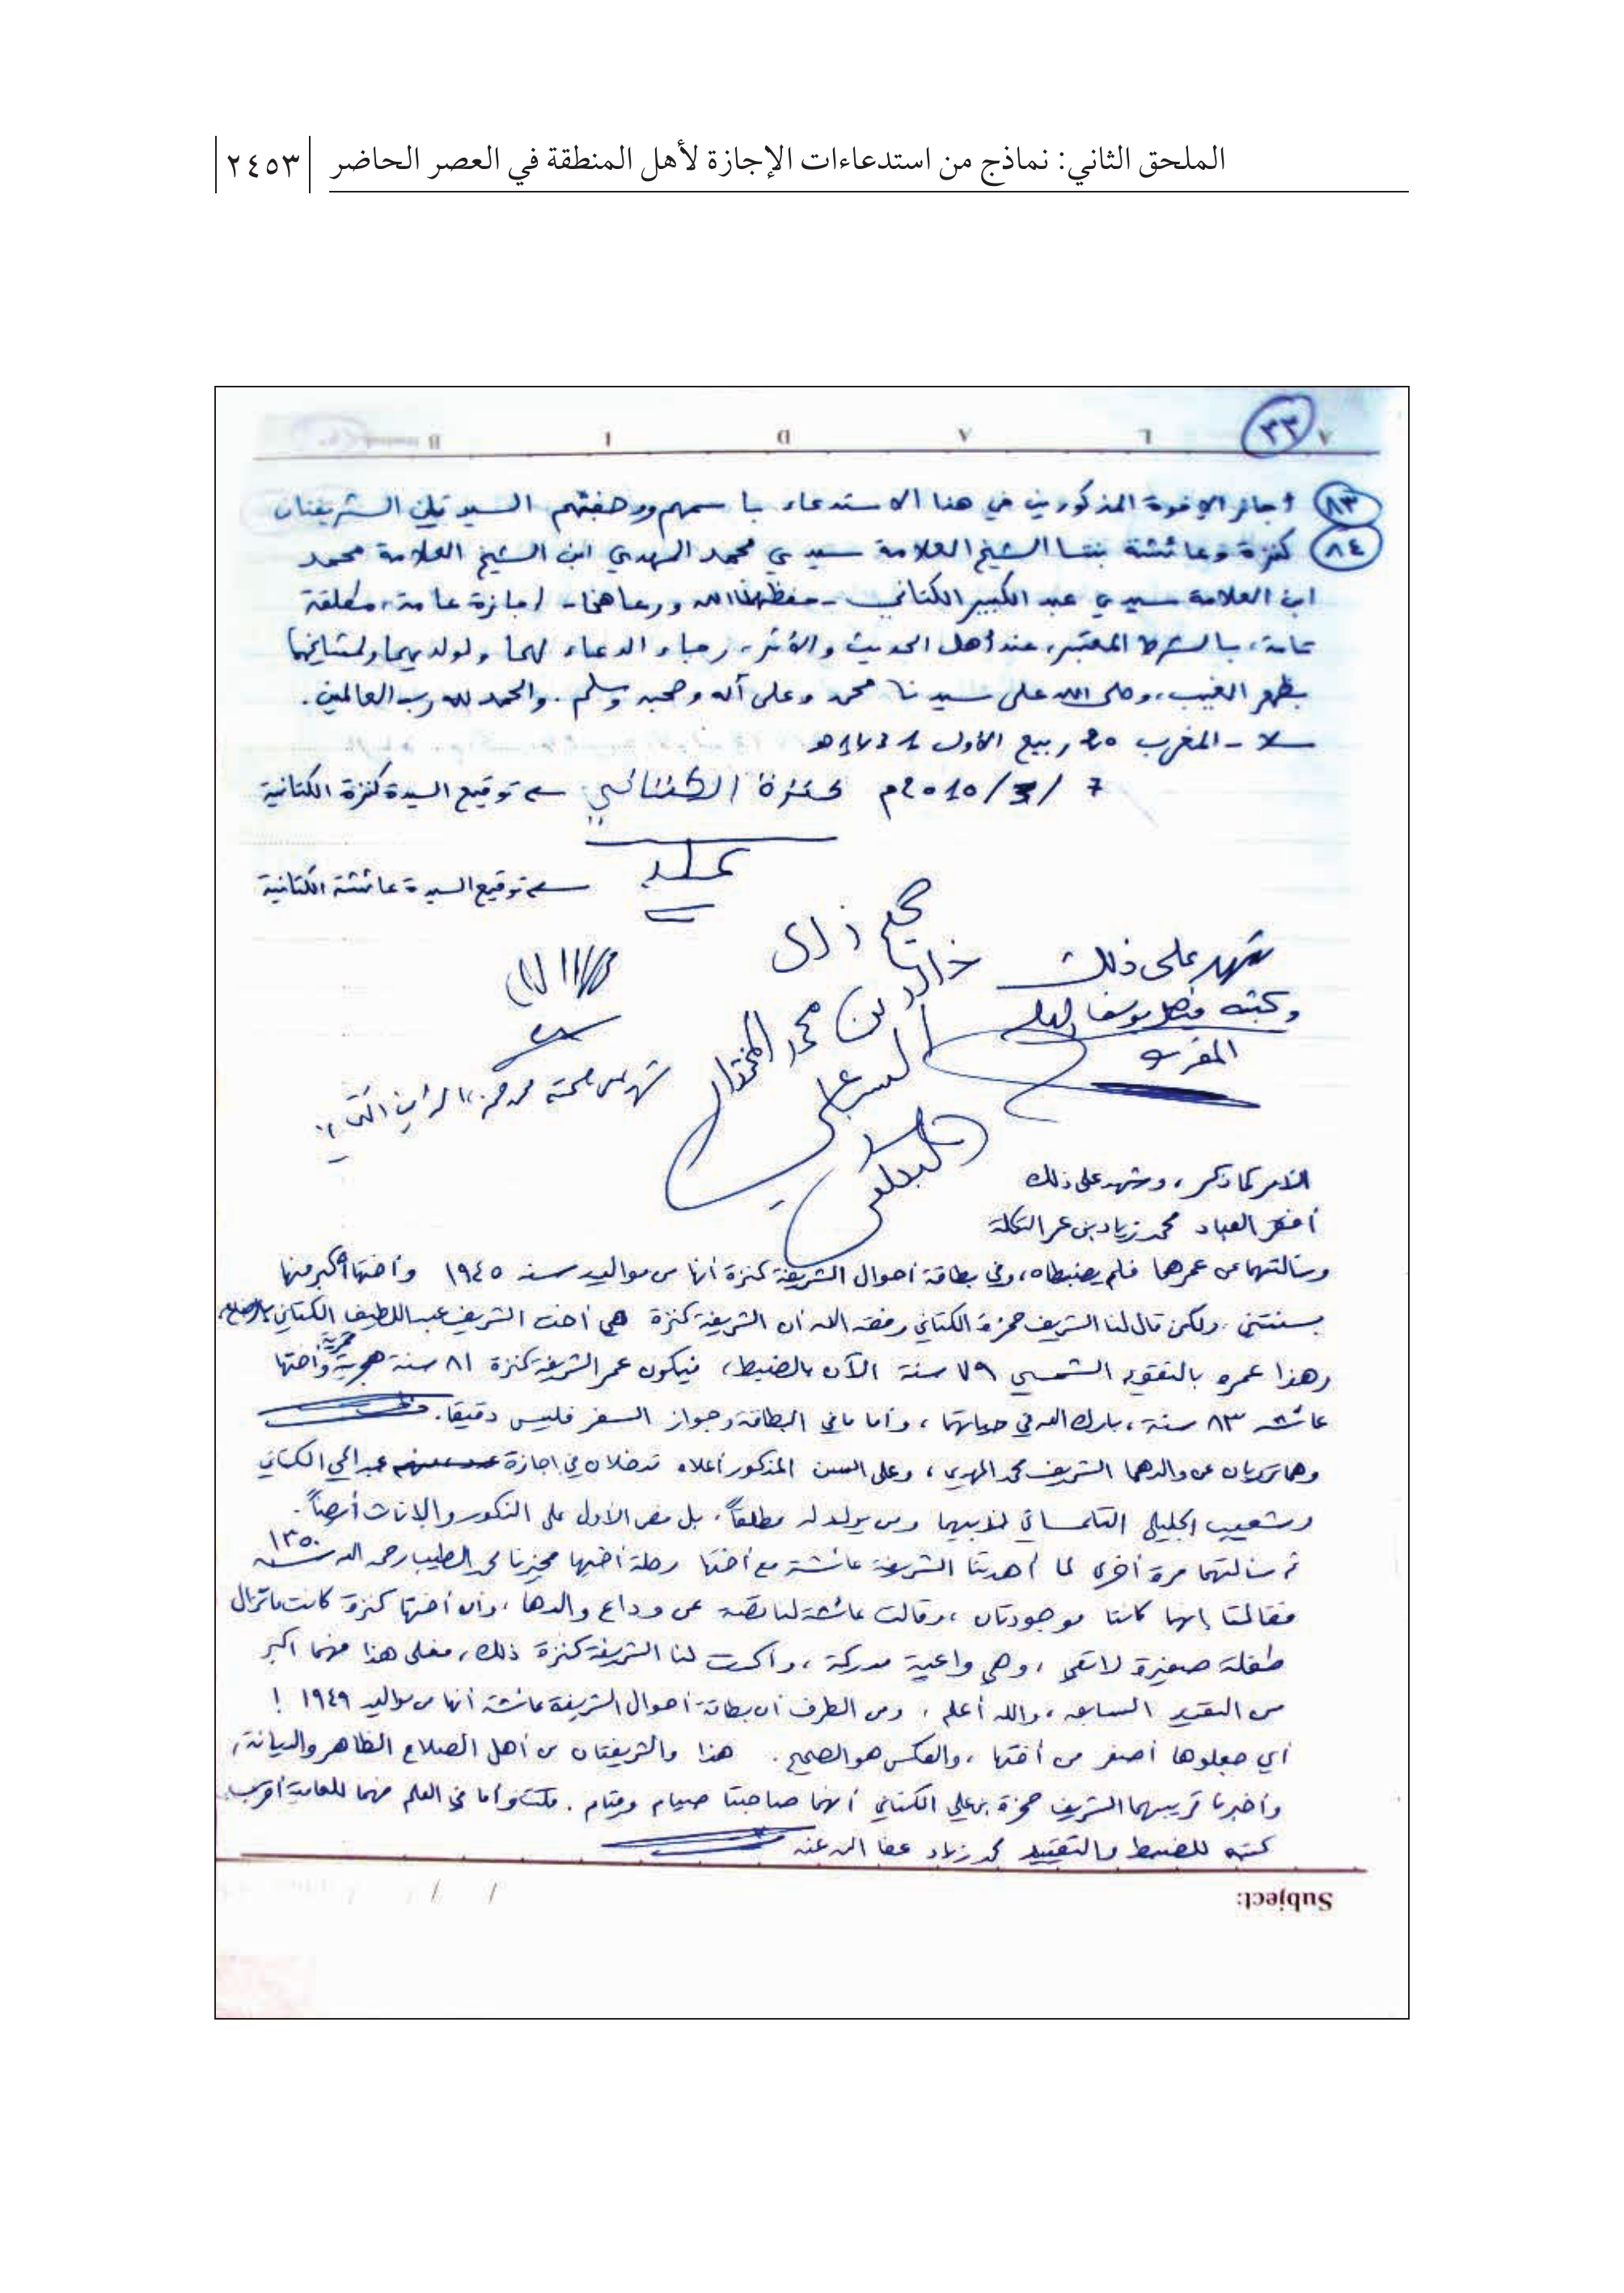 الملحق الثاني: نماذج من استدعاءات الإجازة لأهل المنطقة في العصر الحاضر ٢٤٥٣
٣٣
٨٣ أجاز الإخوة المذكورين في هذا الاستدعاء باسمهم وصفتهم السيدتان الشريفتان
٨٤ كنزة وعائشة بنتا الشيخ العلامة سيدي محمد المهدي ابن الشيخ العلامة محمد
ابن العلامة سيدي عبد الكبير الكتاني - حفظهما الله ورعاهما - إجازة عامة، مطلقة
تامة، بالشرط المعتبر، عند أهل الحديث والأثر، رجاء الدعاء لهما ولوالديهما ولمشايخهما
بظهر الغيب، وصلى الله على سيدنا محمد وعلى آله وصحبه وسلم. والحمد لله رب العالمين.
سلا - المغرب 20 ربيع الأول 1431 هـ
7 / 3 / 2010م كنزة الكتاني توقيع السيدة كنزة الكتانية
توقيع السيدة عائشة الكتانية
صحيح ذلك
خالد بن محمد المختار
السباعي
شهد على ذلك
وكتبه فيصل يوسف العلي
شهد على صحته محمد حمزة بن علي الكتاني
الأمر كما ذكر، وشهد على ذلك
أفقر العباد محمد زياد بن عمر التكلة
وسألتهما عن عمرهما فلم يضبطاه، وفي بطاقة أحوال الشريفة كنزة أنها من مواليد سنة ١٩٤٥ وأختها أكبر منها
بسنتين، ولكن قال لنا الشريف حمزة الكتاني وفقه الله أن الشريفة كنزة هي أخت الشريف عبد اللطيف الكتاني بالرضاع،
وهذا عمره بالتقويم الشمسي ٧٩ سنة الآن بالضبط، فيكون عمر الشريفة كنزة ٨١ سنة هجرية قمرية وأختها
عائشة ٨٣ سنة، بارك الله في حياتهما، وأما ما في البطاقة وجواز السفر فليس دقيقا.
وهما ترويان عن والدهما الشريف محمد المهدي، وعلى السن المذكور أعلاه تدخلان في إجازة عبد الحي الكتاني
وشعيب الجليلي التلمساني لأبيهما ومن يولد له مطلقاً، بل نص الأول على الذكور والإناث أيضاً.
ثم سألتهما مرة أخرى لما أهدتنا الشريفة عائشة مع أختها رحلة أخيها مجيزنا محمد الطيب رحمه الله سنة ١٣٥٠
فقالتا إنهما كانتا موجودتان، وقالت عائشة لنا قصة عن وداع والدها، وأن أختها كنزة كانت ما تزال
طفلة صغيرة لا تعي، وهي واعية مدركة، وأكدت لنا الشريفة كنزة ذلك، فعلى هذا فهما أكبر
من التقييد السابق، والله أعلم، ومن الطرف أن بطاقة أحوال الشريفة عائشة أنها من مواليد ١٩٤٩ !
أي جعلوها أصغر من أختها، والعكس هو الصحيح. هذا والشريفتان من أهل الصلاح الظاهر والديانة،
وأخبرنا قريبهما الشريف حمزة بن علي الكتاني أنهما صاحبتا صيام وقيام. قلت: وأما في العلم فهما للعامية أقرب.
كتبه للضبط والتقييد محمد زياد عفا الله عنه
Subject: